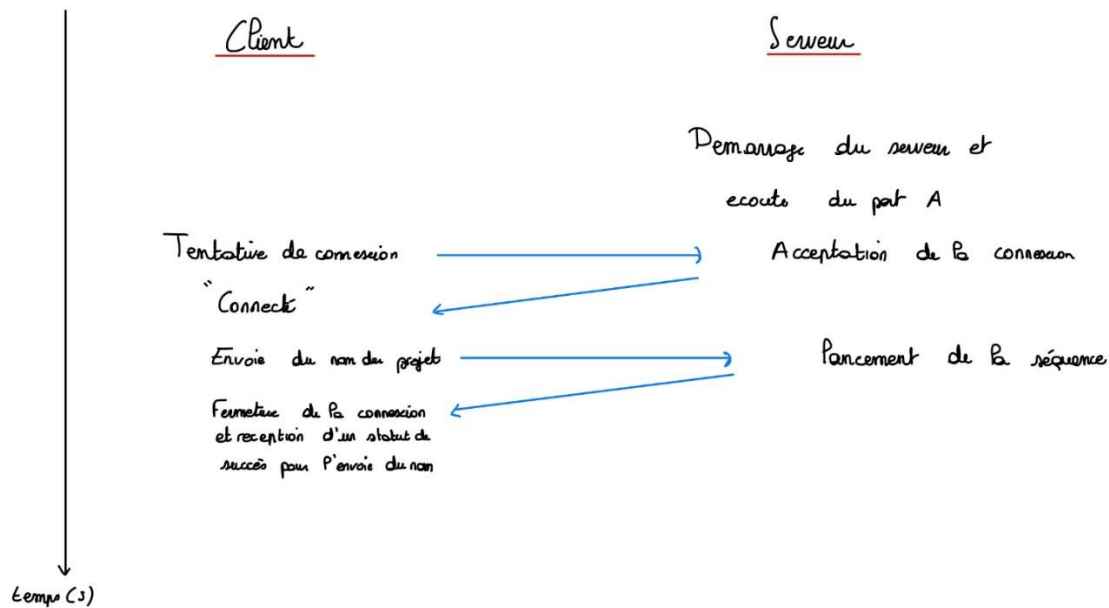 Client
Serveur
Demarrage du serveur et
ecoute du port A
Tentative de connexion
Acceptation de la connexion
"Connecté"
Envoie du nom du projet
Lancement de la séquence
Fermeture de la connexion
et reception d'un statut de
succès pour l'envoie du nom
temps (s)